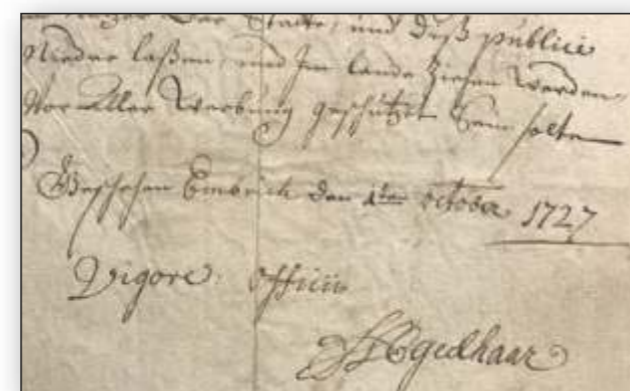 der Stätte, und deß publici
Nieder laßen, und Im lande ziehen werden,
Vor Aller Werbung geschützet sein solten
Geschehen Embrick den 1ten october 1727
Vigore officii